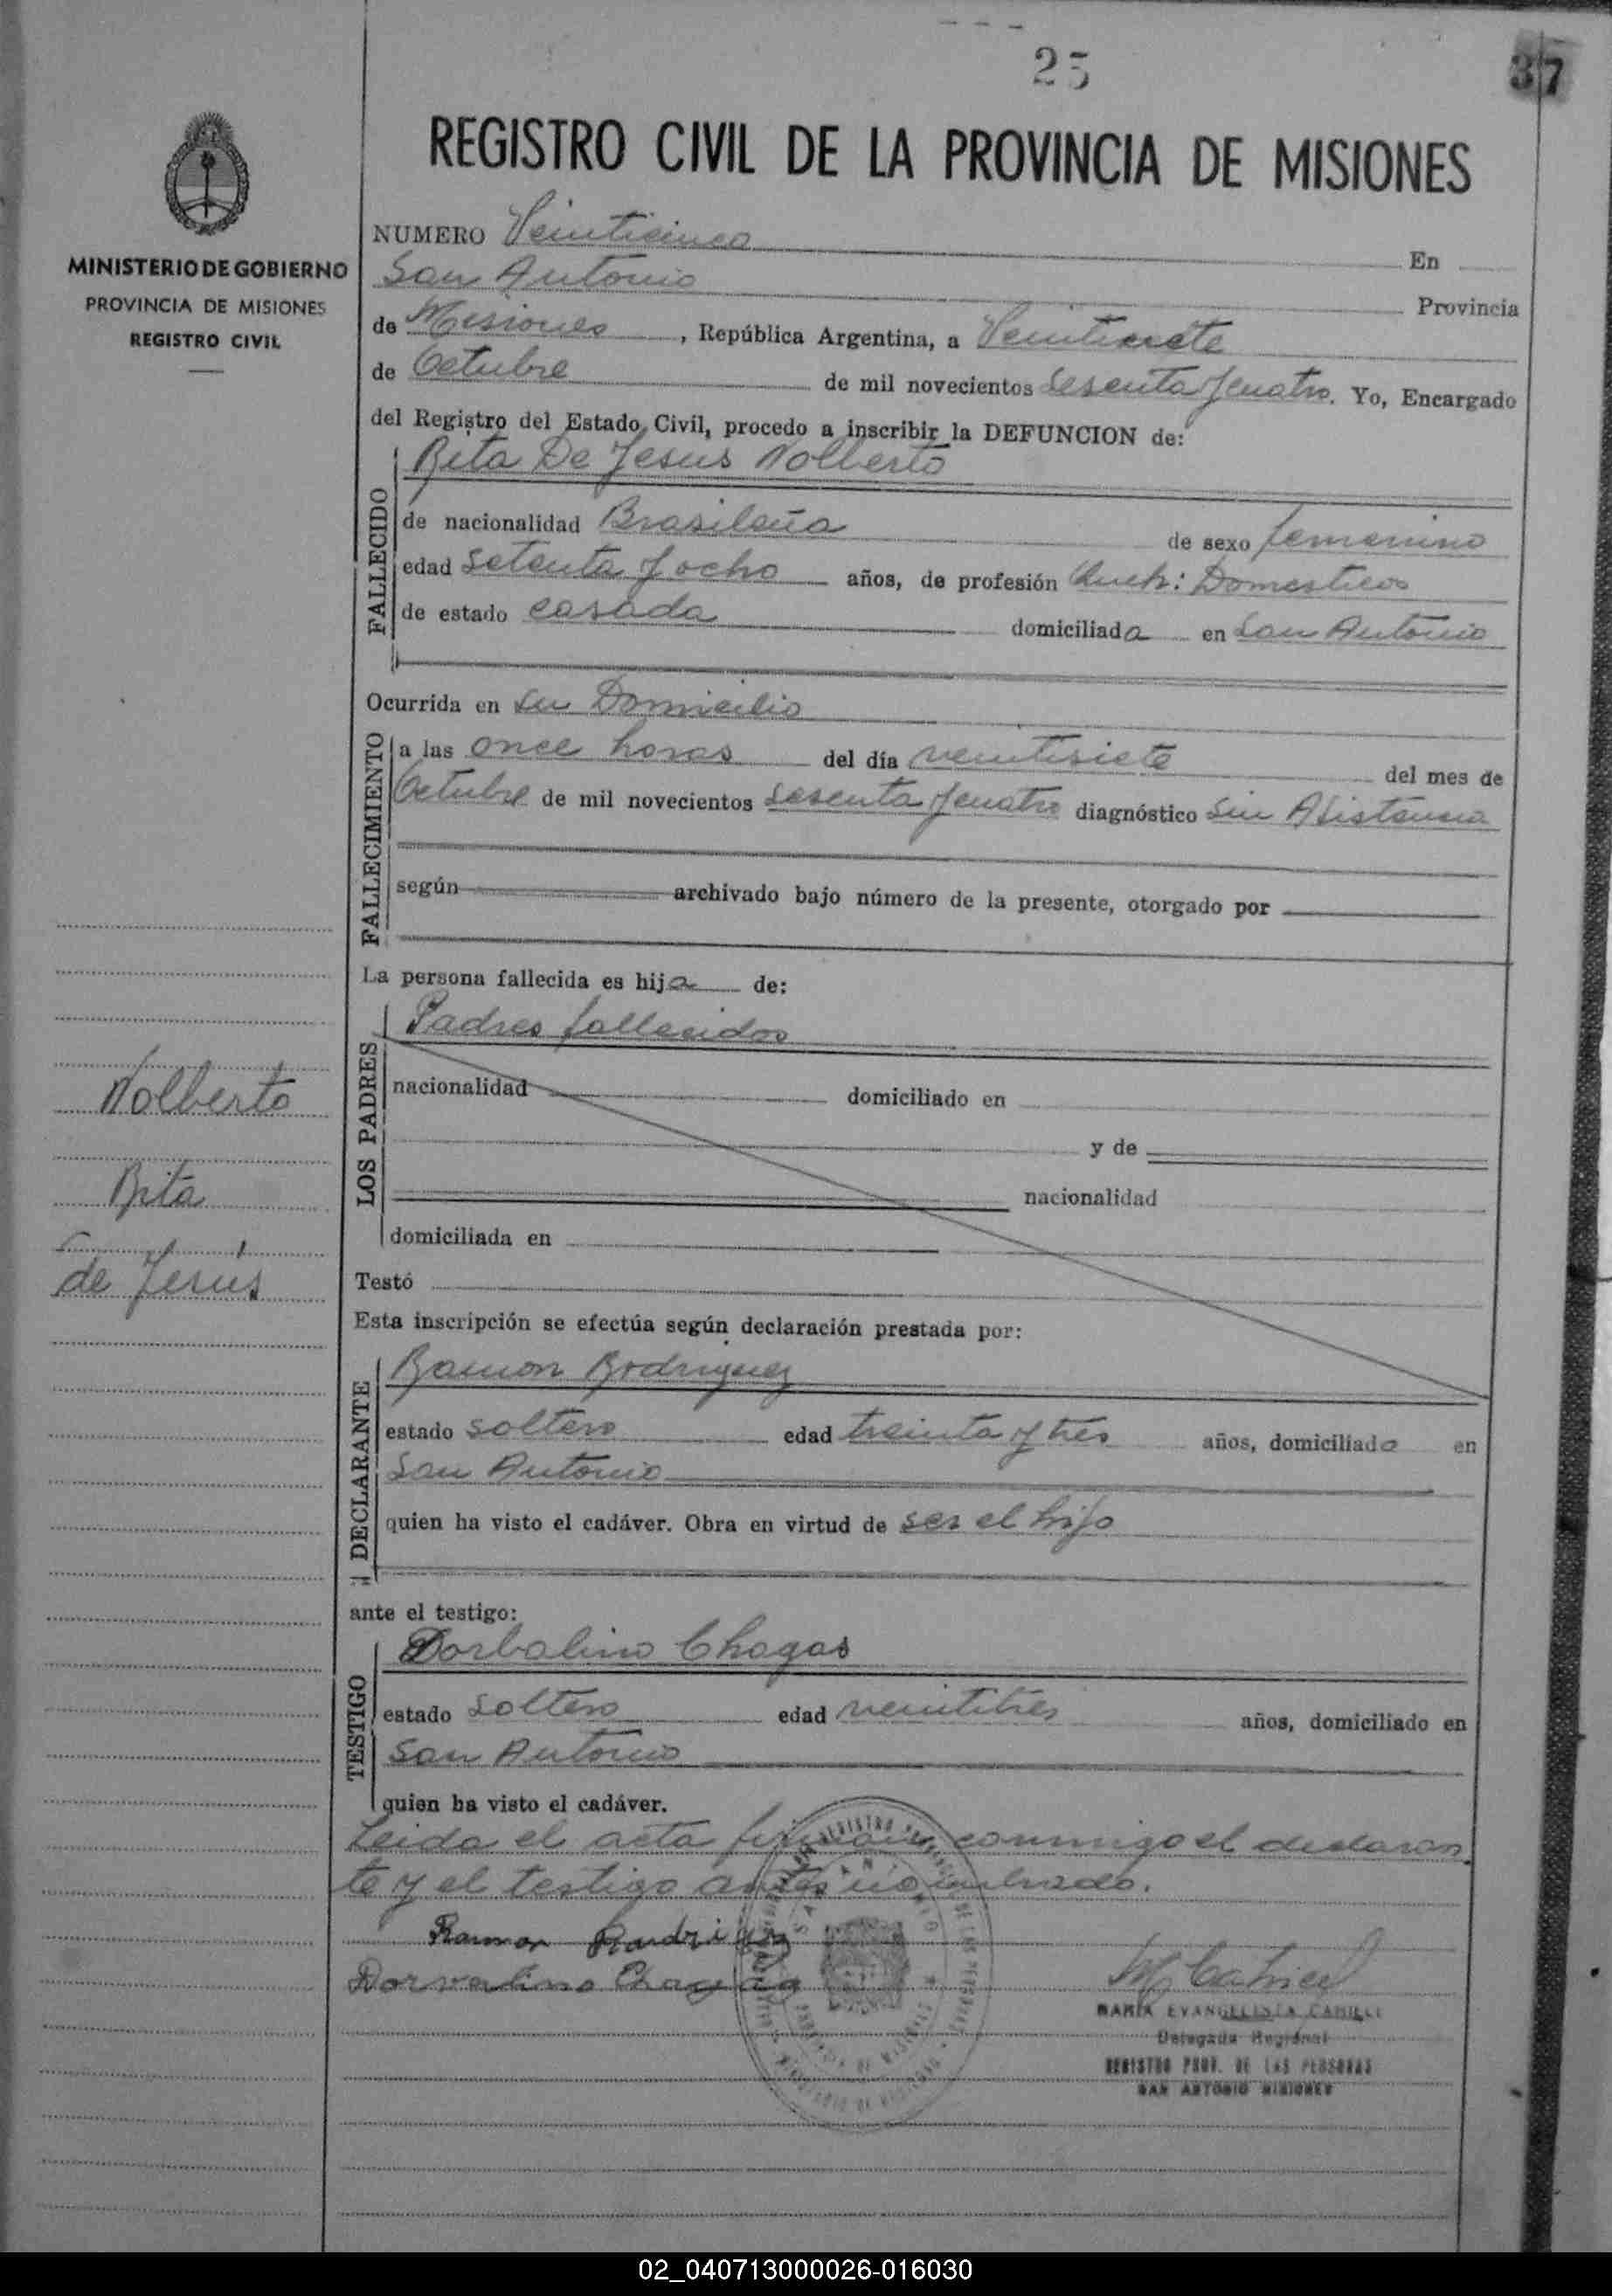 25
37
REGISTRO CIVIL DE LA PROVINCIA DE MISIONES
MINISTERIO DE GOBIERNO
PROVINCIA DE MISIONES
REGISTRO CIVIL
NUMERO Veinticinco En
San Antonio Provincia
de Misiones, República Argentina, a Veintisiete
de Octubre de mil novecientos sesenta y cuatro. Yo, Encargado
del Registro del Estado Civil, procedo a inscribir la DEFUNCION de:
FALLECIDO
Rita De Jesus Nolberto
de nacionalidad Brasileña de sexo femenino
edad setenta y ocho años, de profesión Domesticos
de estado casada domiciliada en San Antonio
Ocurrida en su Domicilio
FALLECIMIENTO
a las once horas del día veintisiete del mes de
Octubre de mil novecientos sesenta y cuatro diagnóstico Sin Asistencia
según archivado bajo número de la presente, otorgado por
La persona fallecida es hija de:
LOS PADRES
Padres fallecidos
nacionalidad domiciliado en
y de
nacionalidad
domiciliada en
Nolberto
Rita
de Jesús
Testó
Esta inscripción se efectúa según declaración prestada por:
DECLARANTE
Ramon Rodriguez
estado soltero edad treinta y tres años, domiciliado en
San Antonio
quien ha visto el cadáver. Obra en virtud de ser el hijo
ante el testigo:
TESTIGO
Dorbalino Chagas
estado soltero edad veintitres años, domiciliado en
San Antonio
quien ha visto el cadáver.
Leida el acta firman conmigo el declaran
te y el testigo antes nombrado.
Ramon
Dorvalino Chagas
MARIA EVANGELISTA
Delegada Regional
REGISTRO PROV. DE LAS PERSONAS
SAN ANTONIO MISIONES
02_040713000026-016030